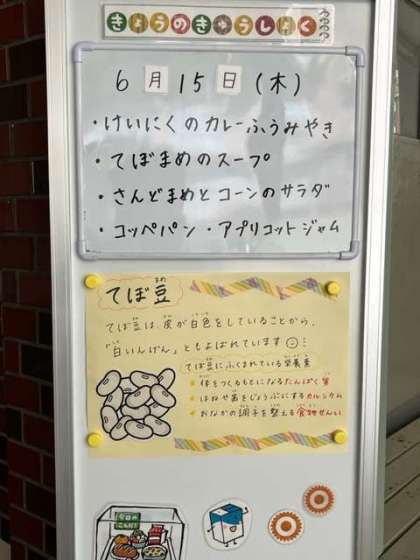 きょうのきゅうしょく
6月15日(木)
・けいにくのカレーふうみやき
・てぼまめのスープ
・さんどまめとコーンのサラダ
・コッペパン・アプリコットジャム
てぼ豆
てぼ豆は、皮が白色をしていることから、
「白いんげん」ともよばれています!
てぼ豆にふくまれている栄養素
体をつくるもとになるたんぱく質
ほねや歯をじょうぶにするカルシウム
おなかの調子を整える食物せんい
今日の
こんだて